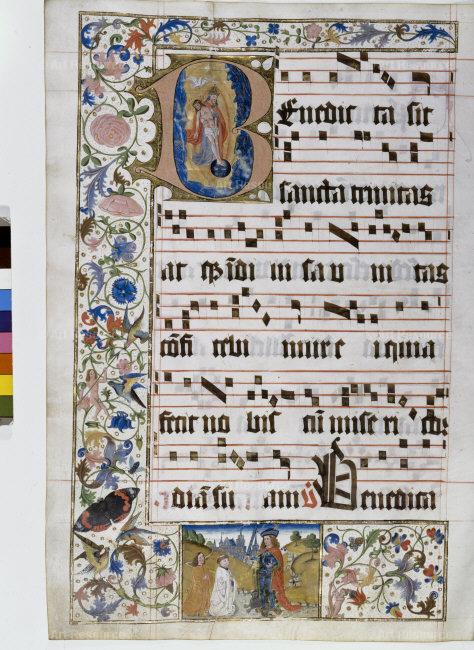 Benedic ta sit
sancta trinitas
at qꝫ īdi ui sa u nitas
cōfi tebi mur e i quia
fecit no bis cū mise ri cor
diā su am Benedica